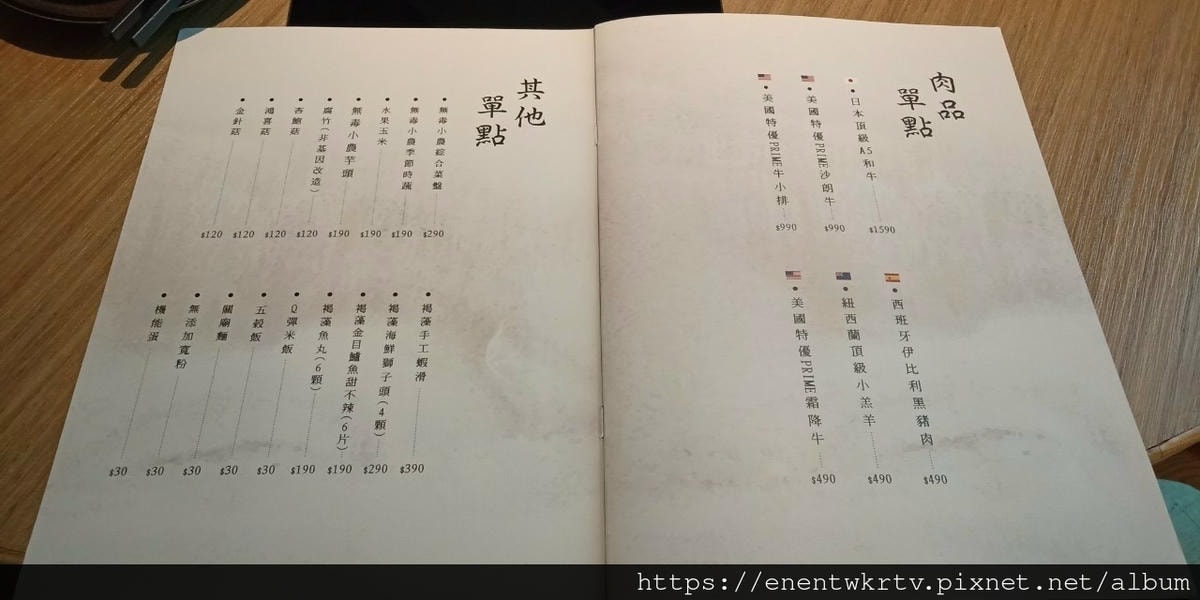 肉品
單點
日本頂級A5和牛 $1590
美國特優PRIME沙朗牛 $990
美國特優PRIME牛小排 $990
西班牙伊比利黑豬肉 $490
紐西蘭頂級小羔羊 $490
美國特優PRIME霜降牛 $490
其他
單點
無毒小農綜合菜盤 $290
無毒小農季節時蔬 $190
水果玉米 $190
無毒小農芋頭 $190
腐竹(非基因改造) $120
杏鮑菇 $120
鴻喜菇 $120
金針菇 $120
褐藻手工蝦滑 $390
褐藻海鮮獅子頭(4顆) $290
褐藻金目鱸魚甜不辣(6片) $190
褐藻魚丸(6顆) $190
Q彈米飯 $30
五穀飯 $30
關廟麵 $30
無添加寬粉 $30
機能蛋 $30
https://enentwkrtv.pixnet.net/album